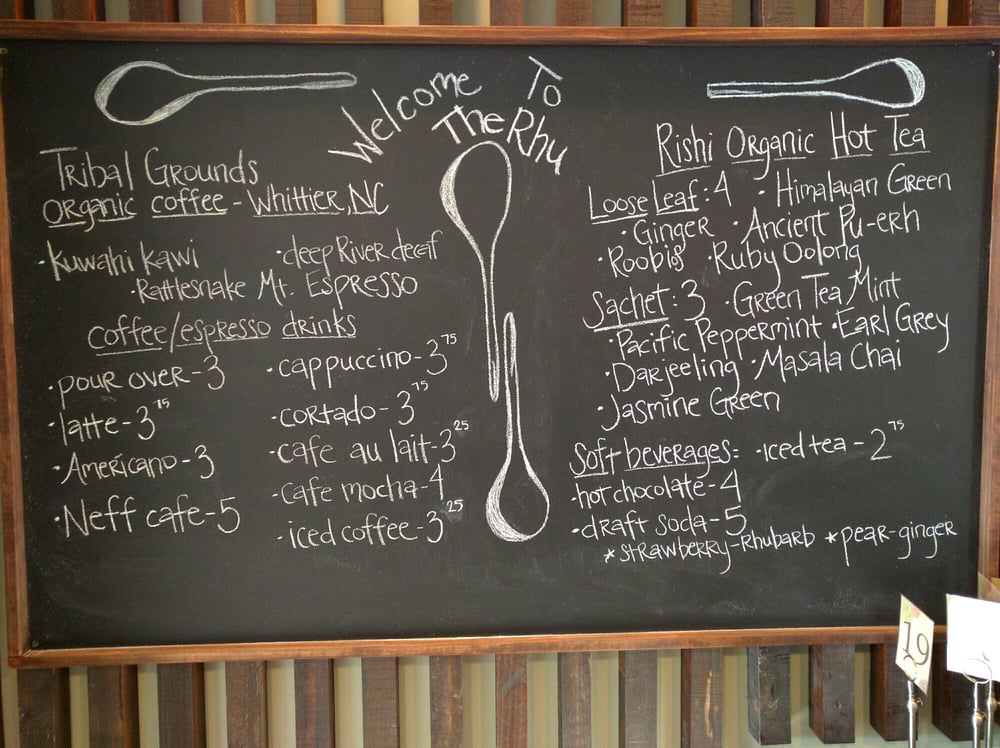 Welcome To
The Rhu
Tribal Grounds
organic coffee - Whittier, NC
·kuwahi kawi ·deep River decaf
·Rattlesnake Mt. Espresso
coffee/espresso drinks
·pour over - 3
·latte - 3 75
·Americano - 3
·Neff cafe - 5
·cappuccino - 3 75
·cortado - 3 75
·cafe au lait - 3 25
·cafe mocha - 4
·iced coffee - 3 25
Rishi Organic Hot Tea
Loose Leaf: 4 ·Himalayan Green
·Ginger ·Ancient Pu-erh
·Roobios ·Ruby Oolong
Sachet: 3 ·Green Tea Mint
·Pacific Peppermint ·Earl Grey
·Darjeeling ·Masala Chai
·Jasmine Green
Soft beverages: ·iced tea - 2 75
·hot chocolate - 4
·draft soda - 5
*strawberry-rhubarb *pear-ginger
19